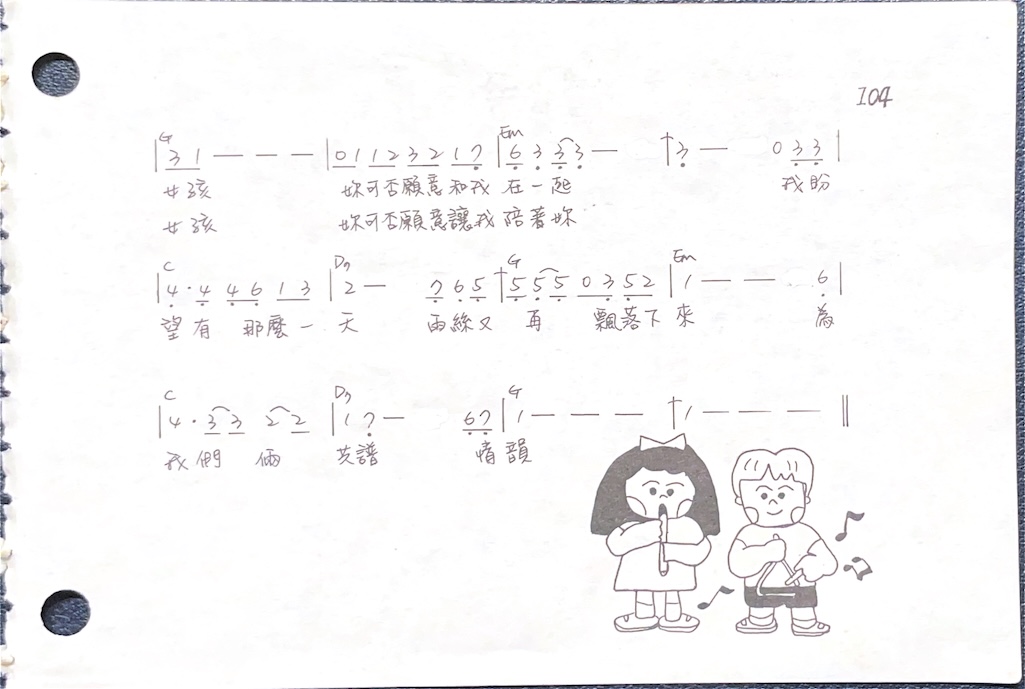 104
G Em
|3 1 — — — |0 1 1 2 3 2 1 7 |6 3 3 3 — †3 — 0 3 3|
女孩 妳可否願意和我 在一起 我盼
女孩 妳可否願意讓我 陪著妳
C D7 G Em
|4 · 4 4 6 1 3 |2 — 7 6 5 †5 5 5 0 3 5 2 |1 — — 6|
望有 那麼一 天 雨絲又 再 飄落下 來 為
C D7 G
|4 · 3 3 2 2 |1 7 — 6 7 |1 — — — †1 — — — ‖
我們 倆 共譜 情韻